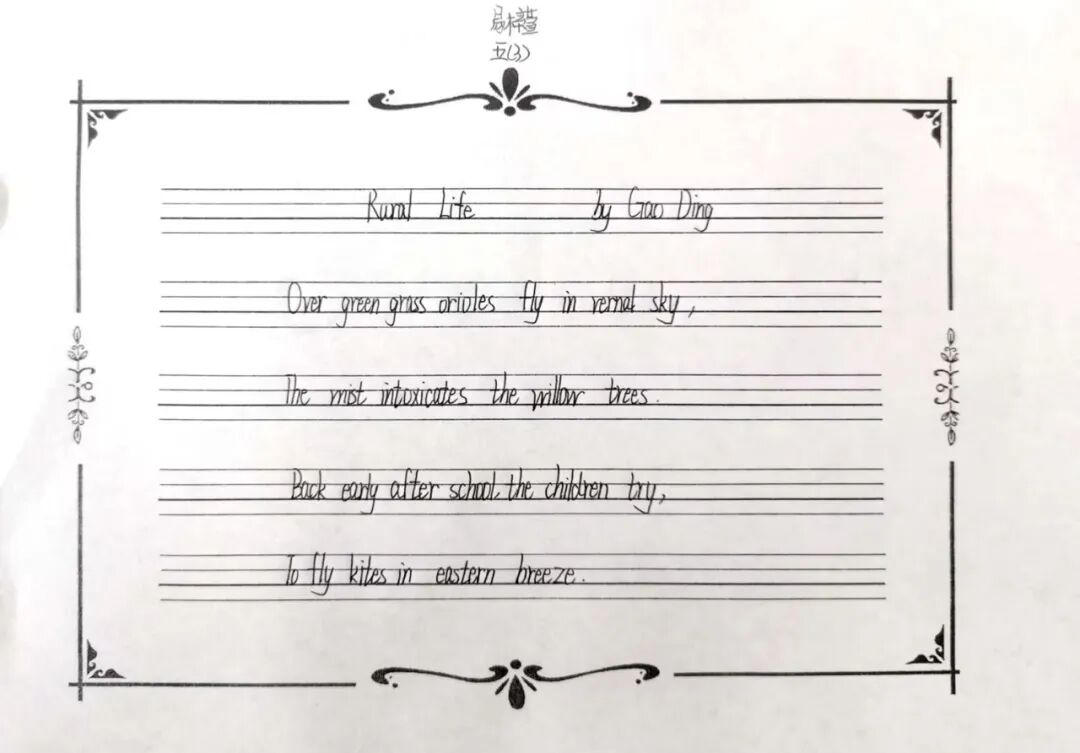 五(3)
Rural Life by Gao Ding
Over green grass orioles fly in vernal sky,
The mist intoxicates the willow trees.
Back early after school, the children try,
To fly kites in eastern breeze.